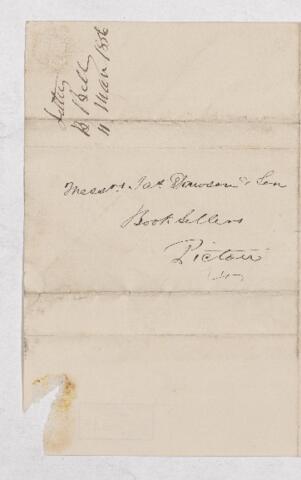 Letter
B Bell
11 Mar 1856
Messrs. Jas Dawson & Son
Book Sellers
Pictou